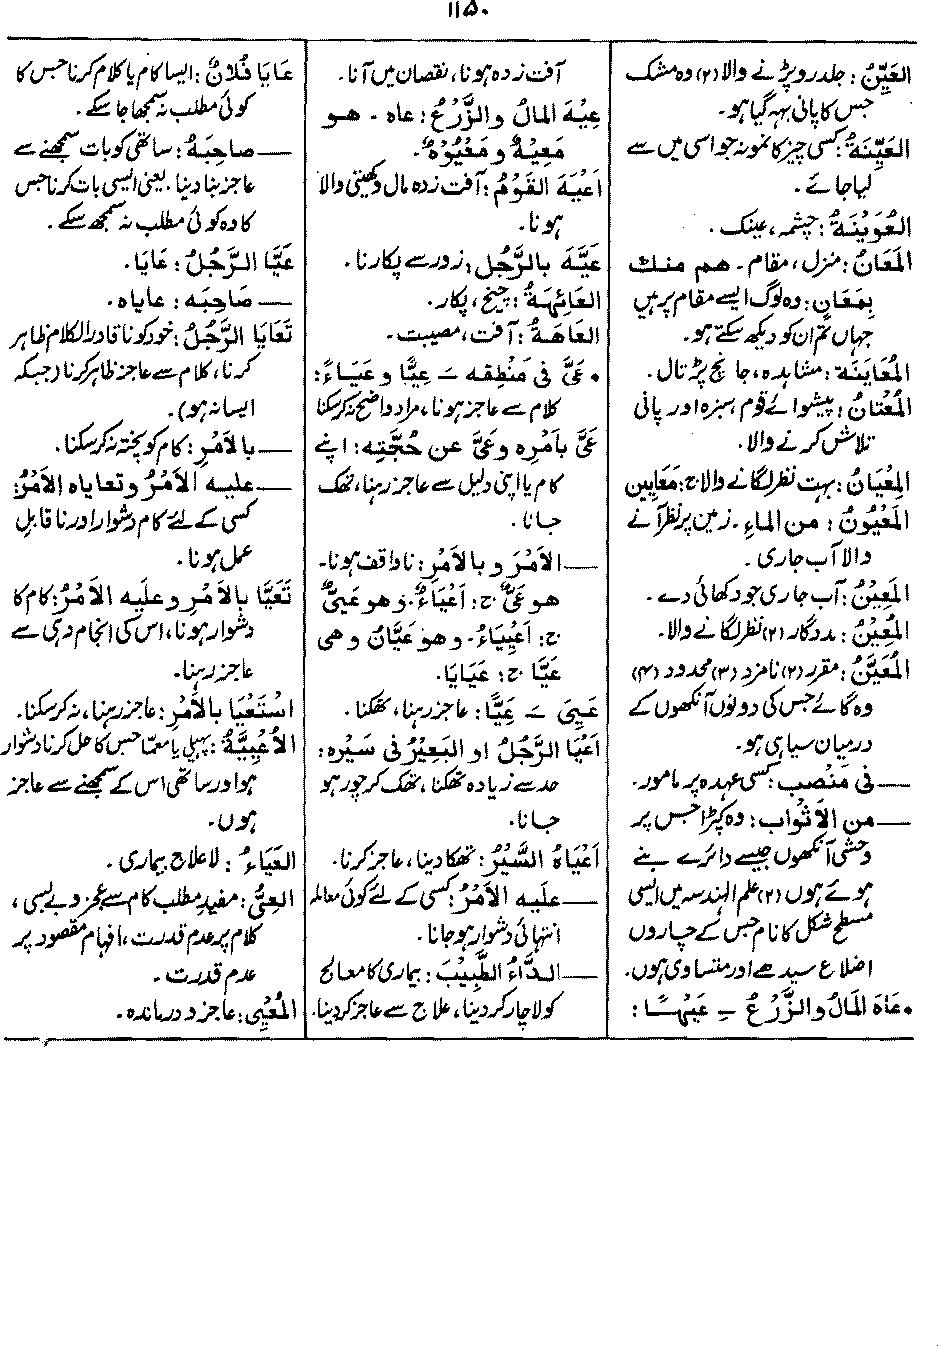 ۱۱۵۰
العَيِّنُ: جلد رو پڑنے والا (۲) وہ مشک
جس کا پانی بہہ گیا ہو۔
العَيِّنَةُ: کسی چیز کا نمونہ جو اسی میں سے
لیا جائے۔
العُوَيْنَةُ: چشمہ، عینک۔
المَعَانُ: منزل، مقام۔ هم منك
بِمَعَانٍ: وہ لوگ ایسے مقام پر ہیں
جہاں تم ان کو دیکھ سکتے ہو۔
المُعَايَنَة: مشاہدہ، جانچ پڑتال۔
المُعْتَانُ: پیشوائے قوم، سبزہ اور پانی
تلاش کرنے والا۔
المِعْيَانُ: بہت نظر لگانے والا ج: مَعَايِين
المَعْيُونُ: من الماءِ۔ زمین پر نظر آنے
والا آب جاری۔
المَعِيْنُ: آب جاری جو دکھائی دے۔
المُعِيْنُ: مددگار (۲) نظر لگانے والا۔
المُعَيَّنُ: مقرر (۲) نامزد (۳) محدود (۴)
وہ گائے جس کی دونوں آنکھوں کے
درمیان سیاہی ہو۔
— فی مَنْصِب: کسی عہدہ پر مامور۔
— من الأَثْوَاب: وہ کپڑا جس پر
وحشی آنکھوں جیسے دائرے بنے
ہوئے ہوں (۲) علم الہندسہ میں ایسی
مسطح شکل کا نام جس کے چاروں
اضلاع سیدھے اور متساوی ہوں۔
• عَاهَ المَالُ والزَّرْعُ ـِ عَيْهًا:
آفت زدہ ہونا، نقصان میں آنا۔
عِيْهَ المَالُ والزَّرْعُ: عاه۔ هو
مَعِيْهٌ و مَعْيُوْهٌ۔
أَعْيَهَ القَوْمُ: آفت زدہ مال و کھیتی والا
ہونا۔
عَيَّهَ بالرَّجُلِ: زور سے پکارنا۔
العَائِهَةُ: چیخ، پکار۔
العَاهَةُ: آفت، مصیبت۔
• عَيَّ فی مَنْطِقِه ـَ عِيًّا و عَيَاءً:
کلام سے عاجز ہونا، مراد واضح نہ کر سکنا
عَيَّ بأَمْرِه وعَيَّ عن حُجَّتِه: اپنے
کام یا اپنی دلیل سے عاجز رہنا، تھک
جانا۔
— الأَمْرَ و بالأَمْرِ: ناواقف ہونا۔
هو عَيٌّ ج: أَعْيَاءٌ۔ وهو عَيِيٌّ
ج: أَعْيِيَاءُ۔ وهو عَيَّانُ وهی
عَيَّا ج: عَيَايَا۔
عَيِيَ ـَ عِيًّا: عاجز رہنا، تھکنا۔
أَعْيَا الرَّجُلُ او البَعِيْرُ فی سَيْرِه:
حد سے زیادہ تھکنا، تھک کر چور ہو
جانا۔
أَعْيَاهُ السَّيْرُ: تھکا دینا، عاجز کرنا۔
— علیه الأَمْرُ: کسی کے لئے کوئی معاملہ
انتہائی دشوار ہو جانا۔
— الدَّاءُ الطَّبِيْبَ: بیماری کا معالج
کو لاچار کر دینا، علاج سے عاجز کر دینا۔
عَايَا فُلَانٌ: ایسا کام یا کلام کرنا جس کا
کوئی مطلب نہ سمجھا جا سکے۔
— صاحِبَهُ: ساتھی کو بات سمجھنے سے
عاجز بنا دینا۔ یعنی ایسی بات کرنا جس
کا وہ کوئی مطلب نہ سمجھ سکے۔
عَيَّا الرَّجُلُ: عَايَا۔
— صَاحِبَه: عاياه۔
تَعَايَا الرَّجُلُ: خود کو نا قادر الکلام ظاہر
کرنا، کلام سے عاجز ظاہر کرنا (جبکہ
ایسا نہ ہو)۔
— بالأَمْرِ: کام کو پختہ نہ کر سکنا۔
— علیه الأَمْرُ وتعاياه الأَمْرُ:
کسی کے لئے کام دشوار اور ناقابل
عمل ہونا۔
تَعَيَّا بالأَمْرِ وعلیه الأَمْرُ: کام کا
دشوار ہونا، اس کی انجام دہی سے
عاجز رہنا۔
اسْتَعْيَا بالأَمْرِ: عاجز رہنا، نہ کر سکنا۔
الأُعْيِيَّةُ: پہیلی یا معما جس کا حل کرنا دشوار
ہو اور ساتھی اس کے سمجھنے سے عاجز
ہوں۔
العَيَاءُ: لا علاج بیماری۔
العِيُّ: مفید مطلب کام سے عجز و بے بسی،
کلام پر عدم قدرت، افہام مقصود پر
عدم قدرت۔
المُعْيِي: عاجز و درماندہ۔